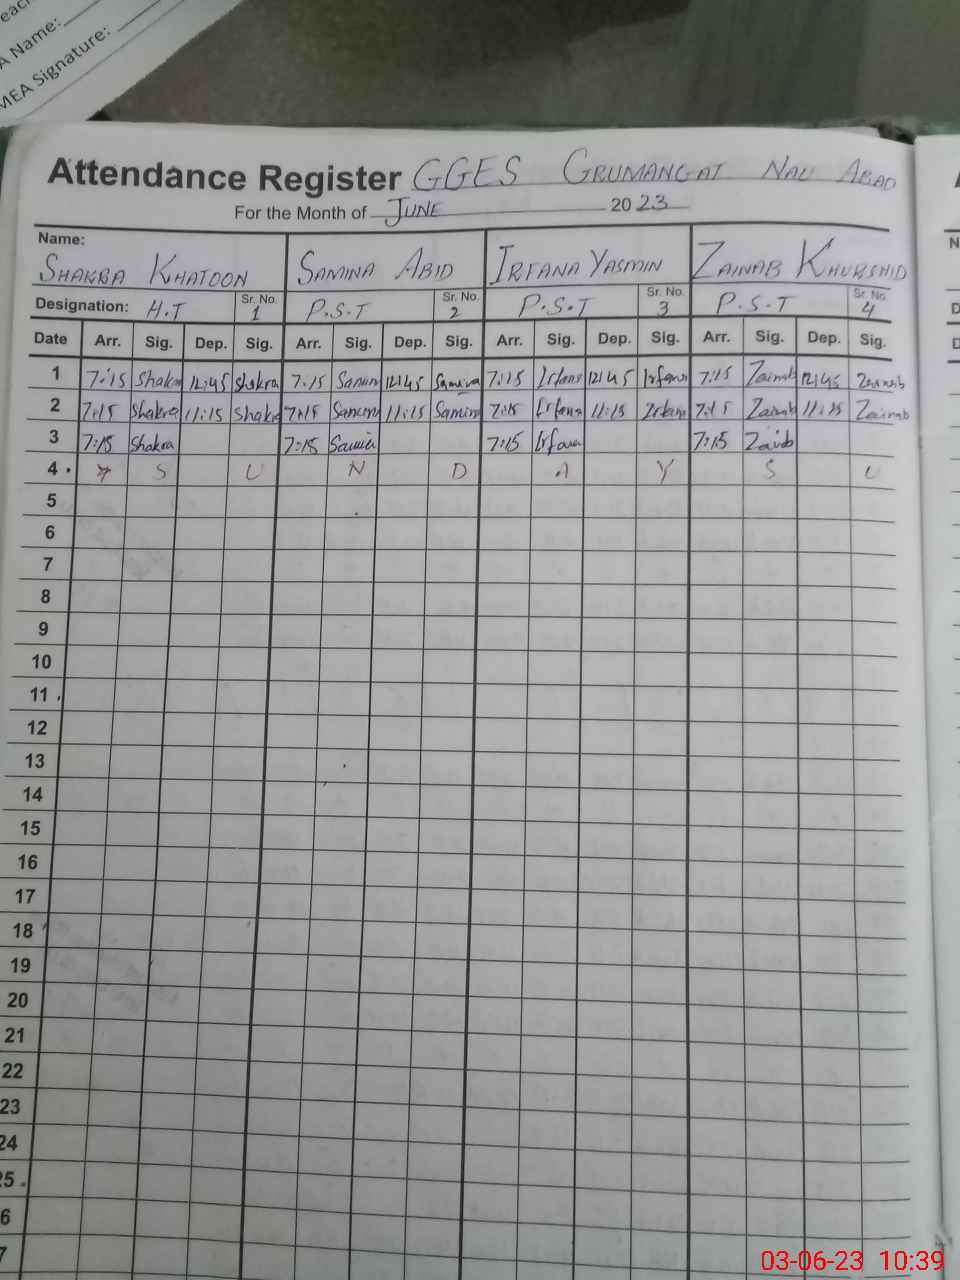 eac
A Name:
MEA Signature:
Attendance Register GGES GRUMANGAT NAU ABAD
For the Month of JUNE 2023
Name:
SHAKRA KHATOON SAMINA ABID IRFANA YASMIN ZAINAB KHURSHID
Designation: H.T Sr. No. 1 P.S.T Sr. No. 2 P.S.T Sr. No. 3 P.S.T Sr. No. 4
Date Arr. Sig. Dep. Sig. Arr. Sig. Dep. Sig. Arr. Sig. Dep. Sig. Arr. Sig. Dep. Sig.
1 7:15 Shakra 12:45 Shakra 7:15 Samina 12:45 Samina 7:15 Irfana 12:45 Irfana 7:15 Zainab 12:45 Zainab
2 7:15 Shakra 11:15 Shakra 7:15 Samina 11:15 Samina 7:15 Irfana 11:15 Irfana 7:15 Zainab 11:15 Zainab
3 7:15 Shakra 7:15 Samina 7:15 Irfana 7:15 Zainab
4 S U N D A Y S U
5
6
7
8
9
10
11
12
13
14
15
16
17
18
19
20
21
22
23
24
25
6
7
03-06-23 10:39